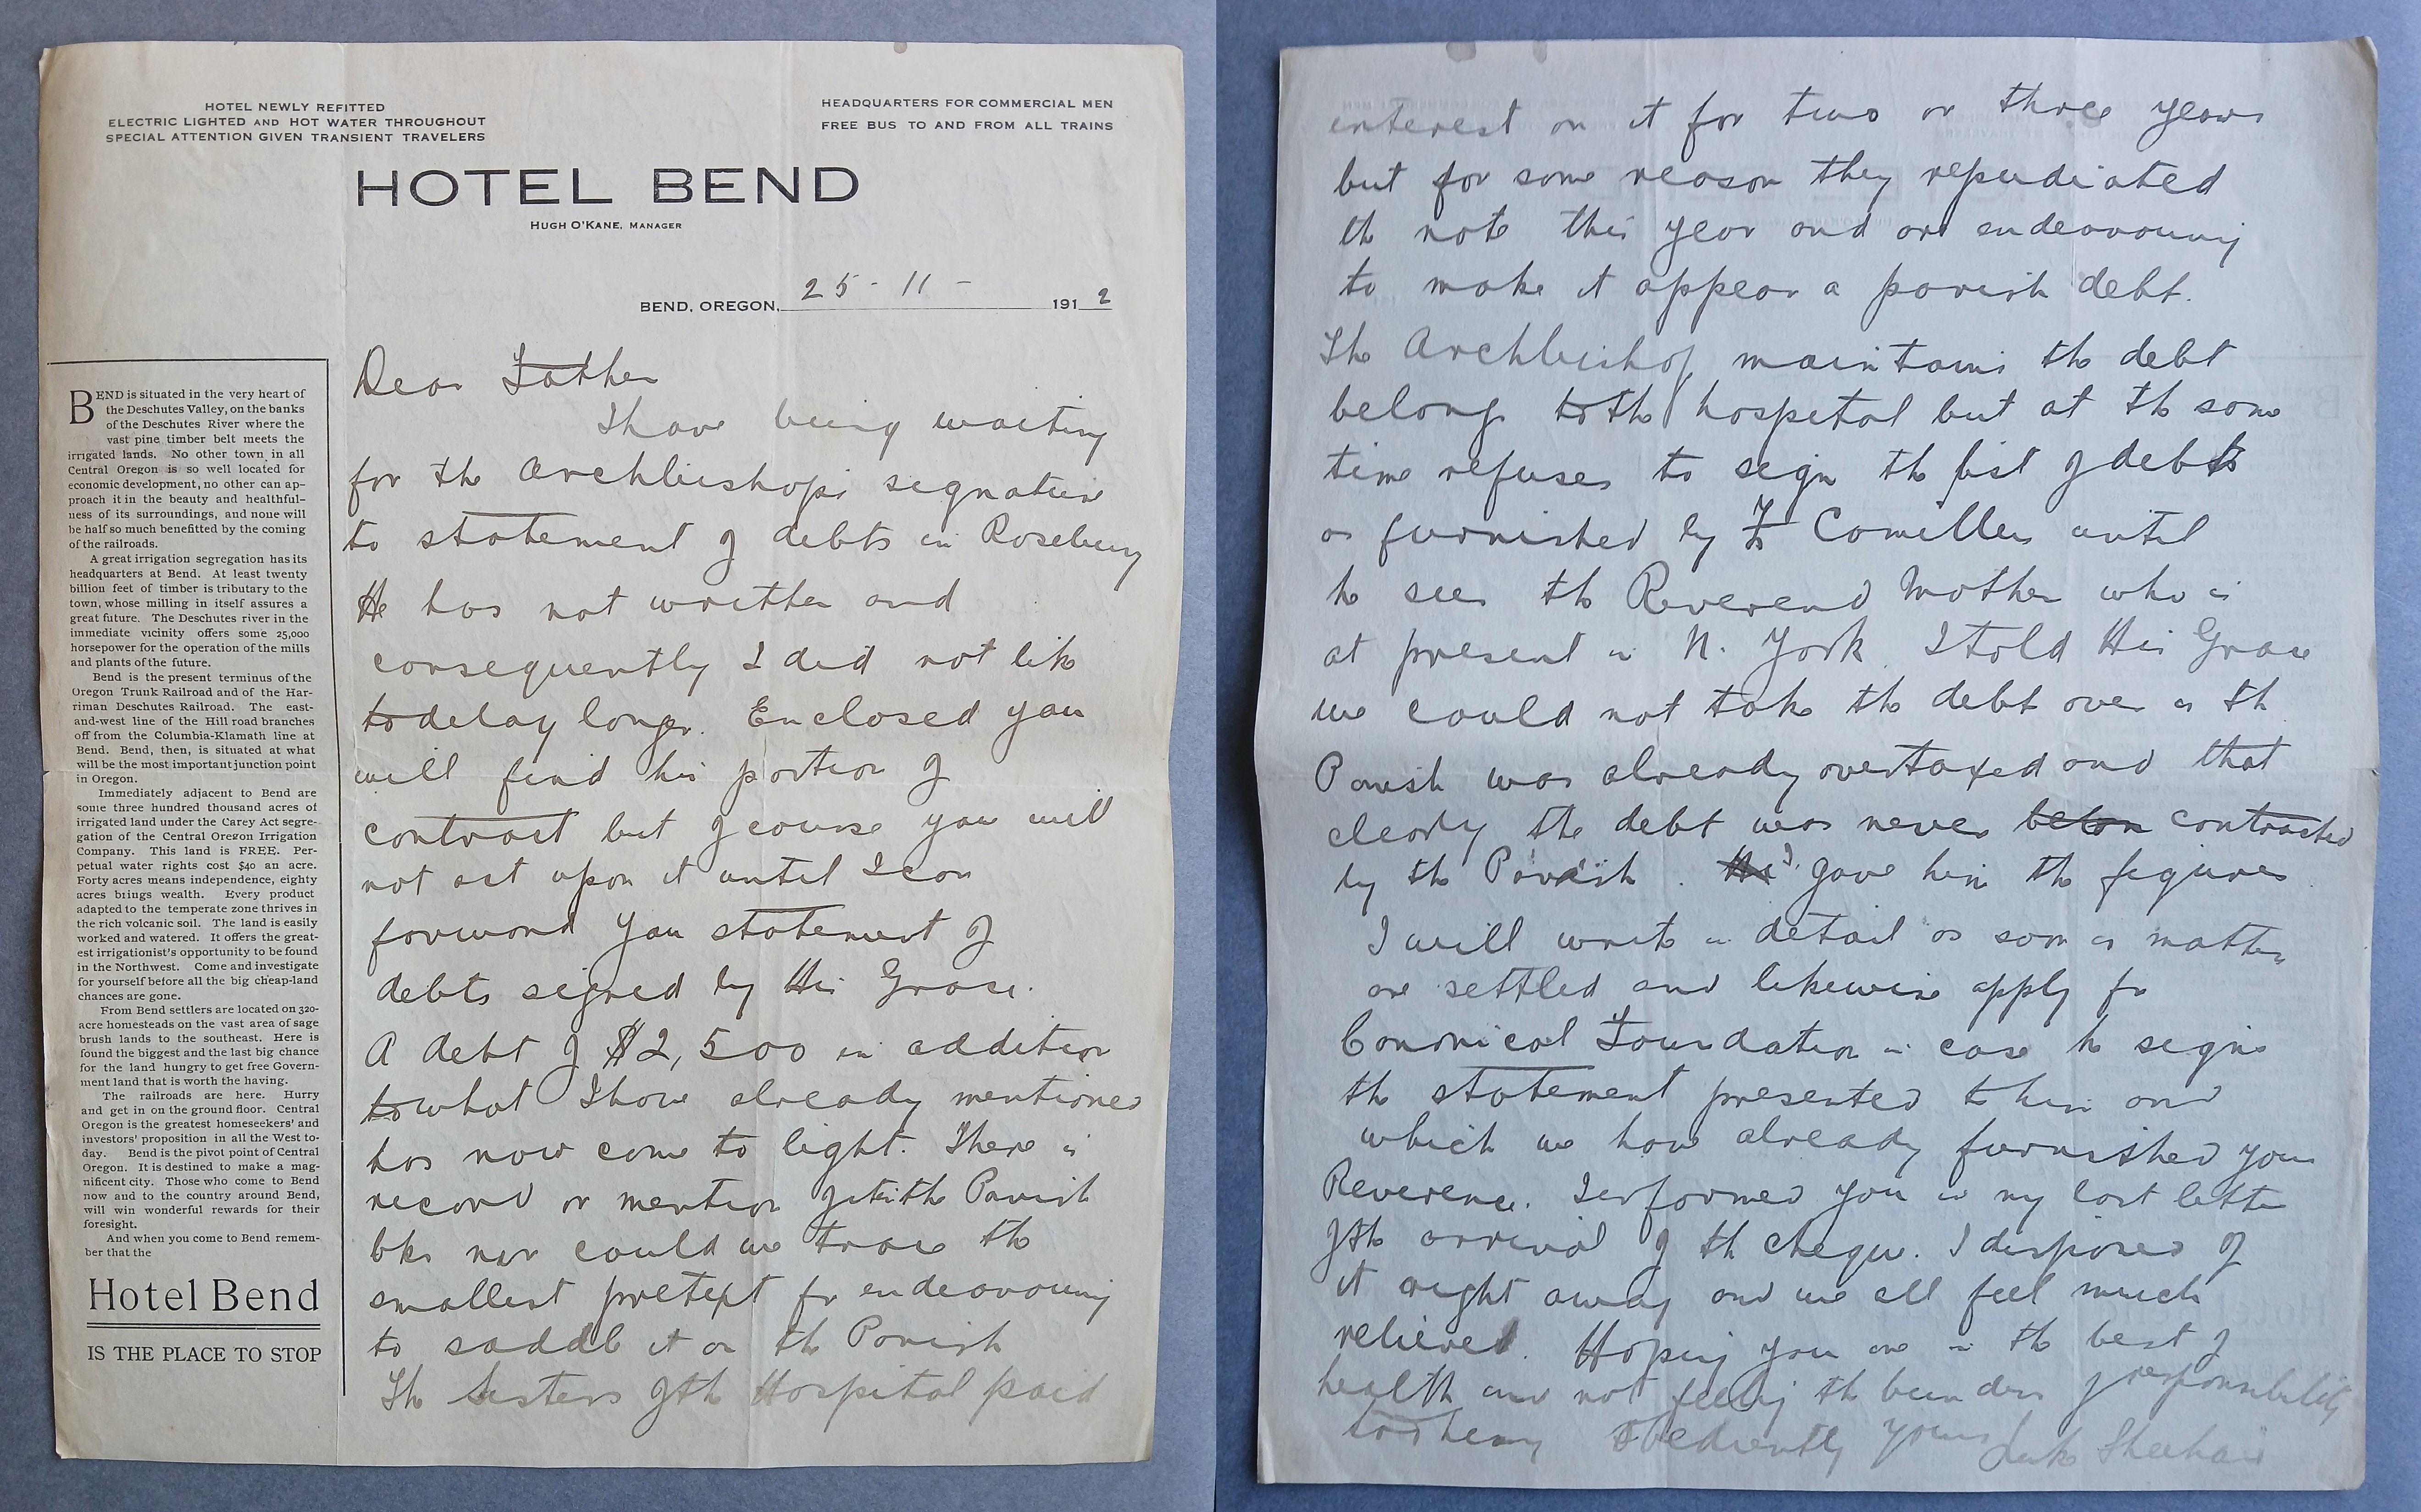 HOTEL NEWLY REFITTED
ELECTRIC LIGHTED AND HOT WATER THROUGHOUT
SPECIAL ATTENTION GIVEN TRANSIENT TRAVELERS
HEADQUARTERS FOR COMMERCIAL MEN
FREE BUS TO AND FROM ALL TRAINS
HOTEL BEND
HUGH O'KANE, MANAGER
BEND, OREGON, 25-11- 1912
BEND is situated in the very heart of
the Deschutes Valley, on the banks
of the Deschutes River where the
vast pine timber belt meets the
irrigated lands. No other town in all
Central Oregon is so well located for
economic development, no other can ap-
proach it in the beauty and healthful-
ness of its surroundings, and none will
be half so much benefitted by the coming
of the railroads.
A great irrigation segregation has its
headquarters at Bend. At least twenty
billion feet of timber is tributary to the
town, whose milling in itself assures a
great future. The Deschutes river in the
immediate vicinity offers some 25,000
horsepower for the operation of the mills
and plants of the future.
Bend is the present terminus of the
Oregon Trunk Railroad and of the Har-
riman Deschutes Railroad. The east-
and-west line of the Hill road branches
off from the Columbia-Klamath line at
Bend. Bend, then, is situated at what
will be the most important junction point
in Oregon.
Immediately adjacent to Bend are
some three hundred thousand acres of
irrigated land under the Carey Act segre-
gation of the Central Oregon Irrigation
Company. This land is FREE. Per-
petual water rights cost $40 an acre.
Forty acres means independence, eighty
acres brings wealth. Every product
adapted to the temperate zone thrives in
the rich volcanic soil. The land is easily
worked and watered. It offers the great-
est irrigationist's opportunity to be found
in the Northwest. Come and investigate
for yourself before all the big cheap-land
chances are gone.
From Bend settlers are located on 320-
acre homesteads on the vast area of sage
brush lands to the southeast. Here is
found the biggest and the last big chance
for the land hungry to get free Govern-
ment land that is worth the having.
The railroads are here. Hurry
and get in on the ground floor. Central
Oregon is the greatest homeseekers' and
investors' proposition in all the West to-
day. Bend is the pivot point of Central
Oregon. It is destined to make a mag-
nificent city. Those who come to Bend
now and to the country around Bend,
will win wonderful rewards for their
foresight.
And when you come to Bend remem-
ber that the
Hotel Bend
IS THE PLACE TO STOP
Dear Father
I have being waiting
for the Archbishops signature
to statement of debts in Roseburg
He has not written and
consequently I did not like
to delay longer. Enclosed you
will find his portion of
contract but of course you will
not act upon it until I can
forward you statement of
debts signed by His Grace.
A debt of $2,500 in addition
to what I have already mentioned
has now come to light. There is
record or mention of it in the Parish
bks nor could we trace the
smallest pretext for endeavouring
to saddle it on the Parish
The Sisters of the Hospital paid
interest on it for two or three years
but for some reason they repudiated
the note this year and are endeavouring
to make it appear a parish debt.
The Archbishop maintains the debt
belongs to the hospital but at the same
time refuses to sign the list of debts
as furnished by Fr Comillus until
he sees the Reverend Mother who is
at present in N. York. I told His Grace
we could not take the debt over as the
Parish was already overtaxed and that
clearly the debt was never contracted
by the Parish. I gave him the figures
I will write in detail as soon as matters
are settled and likewise apply for
Canonical Foundation in case he signs
the statement presented to him and
which we have already furnished your
Reverence. I informed you in my last letter
of the arrival of the cheque. I disposed of
it right away and we all feel much
relieved. Hoping you are in the best of
health and not feeling the burdens of responsibility
too heavy Obediently yours Luke Sheehan